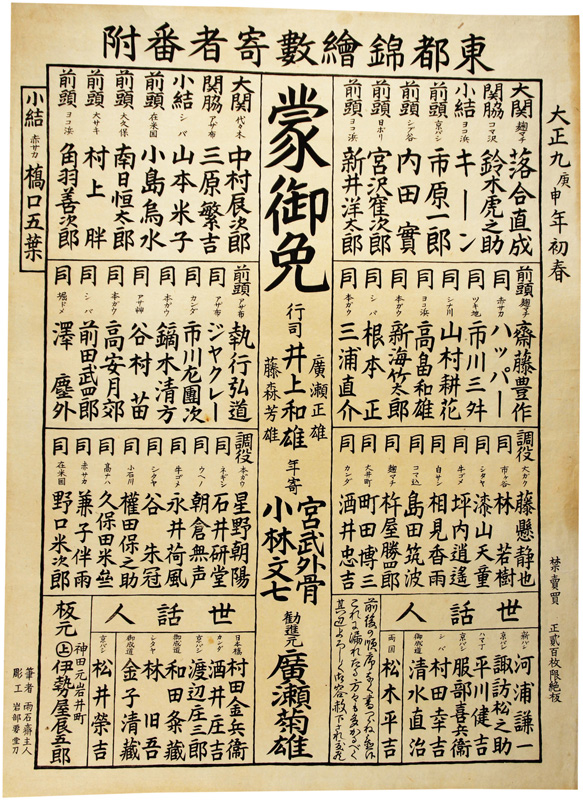 東都錦繪數寄者番附
大正九庚申年初春
禁賣買 正貳百枚限絶板
大関 麹マチ 落合直成
関脇 コマ沢 鈴木虎之助
小結 ヨコ浜 キーン
前頭 京バシ 市原一郎
前頭 シブ谷 内田實
前頭 日ボリ 宮沢寉次郎
前頭 ヨコ浜 新井洋太郎
前頭 麹マチ 齋藤豊作
同 赤サカ ハッパー
同 ツキ地 市川三舛
同 シナ川 山村耕花
同 ヨコ浜 高畠和雄
同 本ガウ 新海竹太郎
同 シバ 根本正
同 本ガウ 三浦直介
調役 大ガク 藤懸静也
同 市ヶ谷 林若樹
同 シタヤ 漆山天童
同 牛ゴメ 坪内逍遙
同 白サン 相見香雨
同 コマ込 島田筑波
同 麹マチ 杵屋勝四郎
同 大井町 町田博三
同 カンダ 酒井忠吉
世話人
新バシ 河浦謙一
京バシ 諏訪松之助
ハマ丁 平川健吉
京バシ 服部喜兵衞
シバ 村田幸吉
御成道 清水直治
両国 松木平吉
蒙御免
行司
廣瀬正雄
井上和雄
藤森芳雄
年寄
宮武外骨
小林文七
勧進元 廣瀬菊雄
大関 代々木 中村辰次郎
関脇 アザ布 三原繁吉
小結 シバ 山本米子
前頭 在米国 小島烏水
前頭 大久保 南日恒太郎
前頭 大サキ 村上胖
前頭 ヨコ浜 角羽善次郎
小結 赤サカ 橋口五葉
前頭 アザ布 執行弘道
同 アザ布 ジヤクレー
同 カンダ 市川左團次
同 本ガウ 鏑木清方
同 アザ布 谷村苗
同 本ガウ 高安月郊
同 シバ 前田武四郎
同 堀ドメ 澤塵外
調役 本ガウ 星野朝陽
同 ネギシ 石井研堂
同 ウヘノ 朝倉無声
同 牛ゴメ 永井荷風
同 シタヤ 谷朱冠
同 小石川 權田保之助
同 高ナハ 久保田米斎
同 赤サカ 兼子伴雨
同 在米国 野口米次郎
世話人
日本橋 村田金兵衞
カンダ 酒井庄吉
京バシ 渡辺庄三郎
御成道 和田条藏
シタヤ 林旧吾
御成道 金子清藏
京バシ 松井榮吉
板元 神田元岩井町 上 伊勢屋辰五郎
筆者 雨石齋主人
彫工 岩部要堂刀